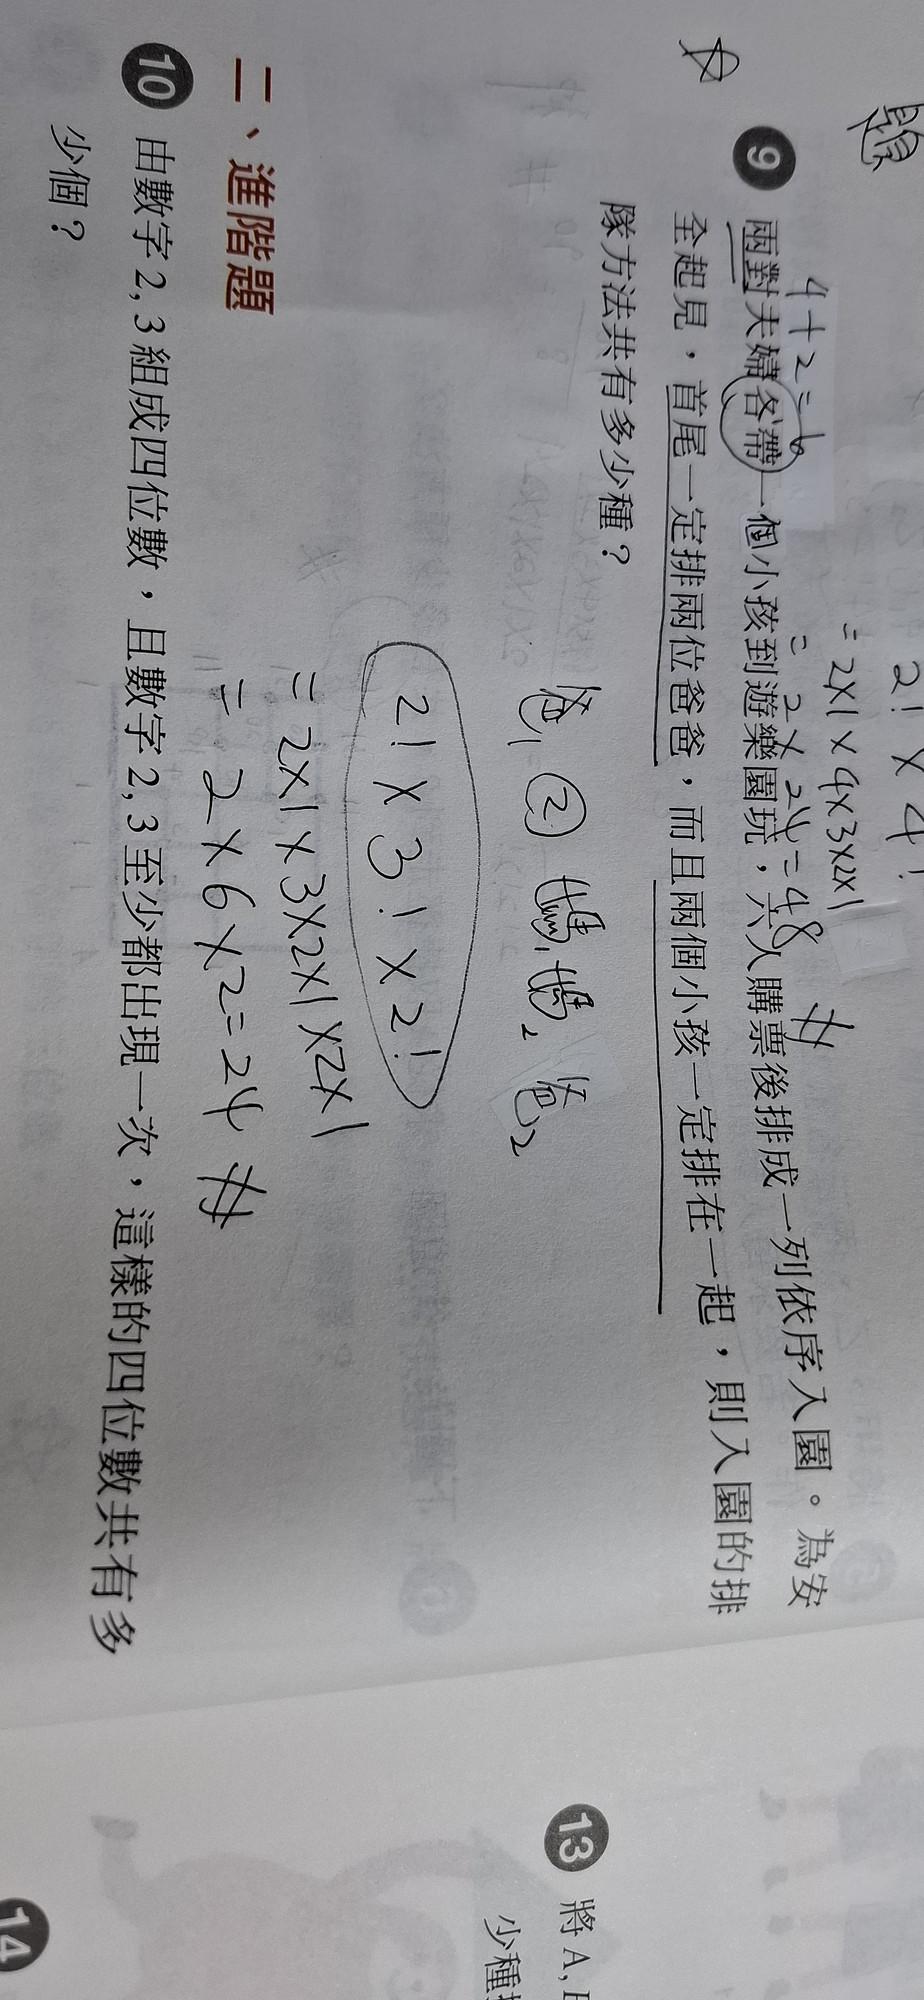 題
2! × 4!
= 2×1 × 4×3×2×1
= 2 × 24 = 48 #
4+2=6
9 兩對夫婦各帶一個小孩到遊樂園玩，六人購票後排成一列依序入園。為安
全起見，首尾一定排兩位爸爸，而且兩個小孩一定排在一起，則入園的排
隊方法共有多少種？
爸1 ② 媽1 媽2 爸2
2! × 3! × 2!
= 2×1 × 3×2×1 × 2×1
= 2 × 6 × 2 = 24 #
二、進階題
10 由數字 2, 3 組成四位數，且數字 2, 3 至少都出現一次，這樣的四位數共有多
少個？
13 將 A,
少種
14